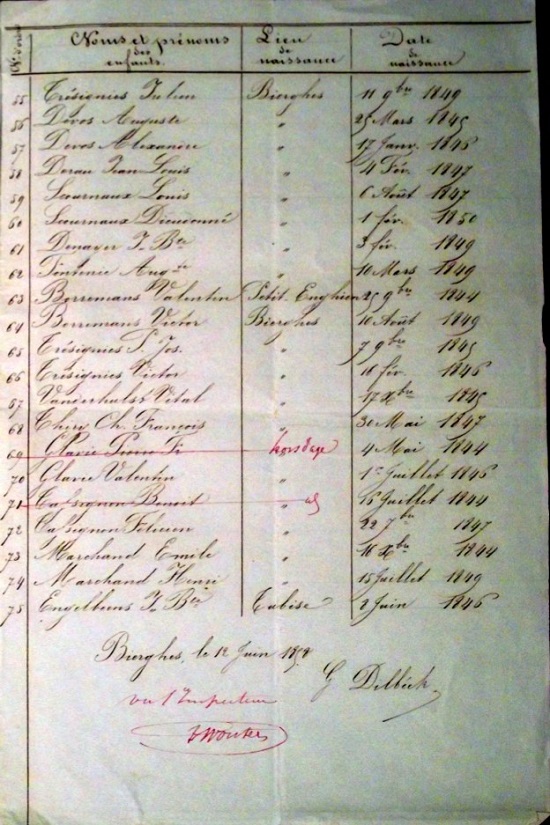 Nos d'ordre Noms et prénoms des enfants. Lieu de naissance Date de naissance
55 Trésignies Julien Bierghes 11 9bre 1849
56 Devos Auguste " 25 Mars 1845
57 Devos Alexandre " 17 Janv. 1846
58 Derau Jean Louis " 4 Fév. 1847
59 Scournaux Louis " 6 Août 1847
60 Scournaux Dieudonné " 1 fév. 1850
61 Denayer J. Bte " 3 fév. 1849
62 Augte " 10 Mars 1849
63 Borremans Valentin Petit-Enghien 25 9bre 1844
64 Borremans Victor Bierghes 10 Août 1849
65 Trésignies P. Jos. " 7 9bre 1845
66 Trésignies Victor " 10 fév. 1846
67 Vanderhulst Vital " 17 Xbre 1845
68 Thery Ch. François " 30 Mai 1847
69 Glavie Pierre Fr hors d'âge 4 Mai 1844
70 Glavie Valentin " 1er Juillet 1846
71 Cassignon Benoit " id 16 Juillet 1844
72 Cassignon " 22 7bre 1847
73 Marchand Emile " 16 Xbre 1844
74 Marchand Henri " 15 Juillet 1849
75 Engelbeens J. Bte Tubise 2 Juin 1846
Bierghes, le 12 Juin 1858
G Delbéck
vu l'Inspecteur